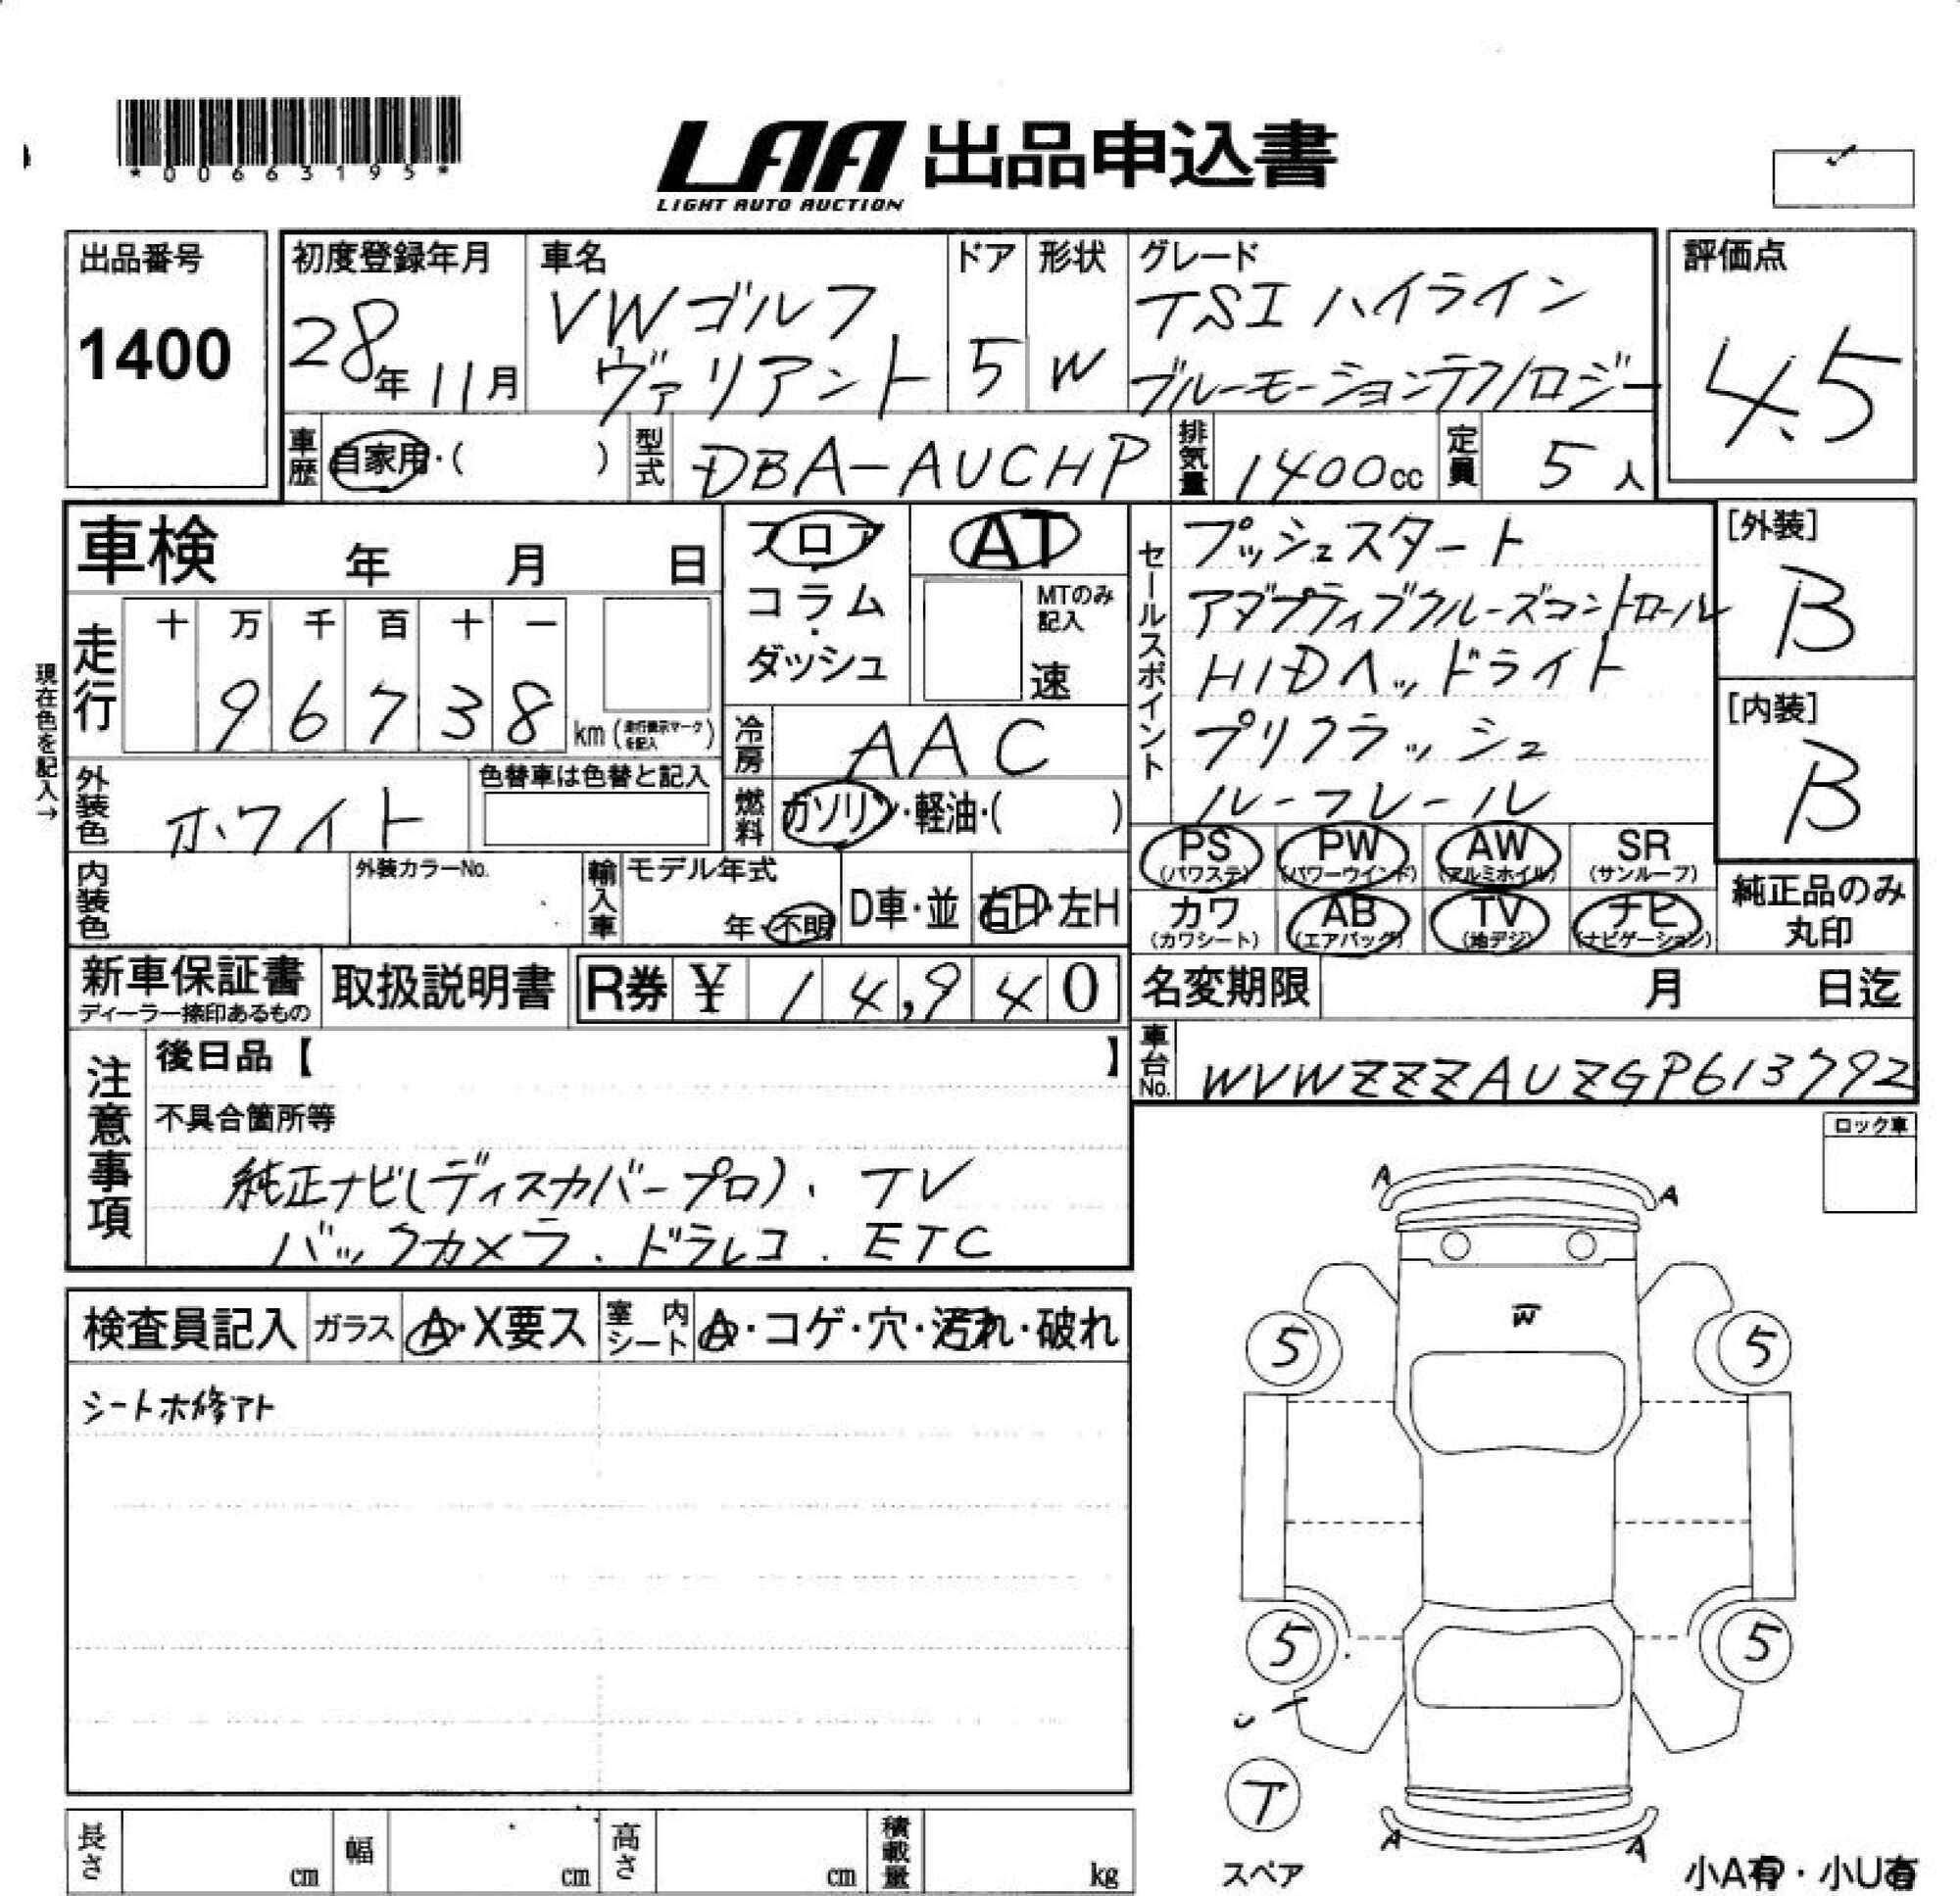 *00663195*
LAA 出品申込書
LIGHT AUTO AUCTION
出品番号
1400
初度登録年月
28年11月
車名
VWゴルフ
ヴァリアント
ドア
5
形状
W
グレード
TSIハイライン
ブルーモーションテクノロジー
評価点
4.5
車歴
自家用・( )
型式
DBA-AUCHP
排気量
1400cc
定員
5人
車検 年 月 日
フロア
・
コラム
・
ダッシュ
AT
MTのみ
記入
速
セールスポイント
プッシュスタート
アダプティブクルーズコントロール
HIDヘッドライト
プリクラッシュ
ルーフレール
[外装]
B
[内装]
B
現在色を記入→
走行
十 万 千 百 十 一
9 6 7 3 8
km(走行表示マークを記入)
冷房
AAC
外装色
ホワイト
色替車は色替と記入
燃料
ガソリン・軽油・( )
PS
(パワステ)
PW
(パワーウインド)
AW
(アルミホイル)
SR
(サンルーフ)
カワ
(カワシート)
AB
(エアバッグ)
TV
(地デジ)
ナビ
(ナビゲーション)
純正品のみ
丸印
内装色
外装カラーNo.
輸入車
モデル年式
年・不明
D車・並
右H・左H
新車保証書
ディーラー捺印あるもの
取扱説明書
R券 ¥ 14,940
名変期限 月 日迄
車台No.
WVWZZZAUZGP613792
注意事項
後日品【 】
不具合箇所等
純正ナビ(ディスカバープロ)、TV
バックカメラ、ドラレコ、ETC
ロック車
検査員記入
ガラス
A・X要ス
室内
シート
A・コゲ・穴・汚れ・破れ
シートホ修アト
A A
W
5 5
5 5
T
スペア
A A
小A有・小U有
長さ cm
幅 cm
高さ cm
積載量 kg